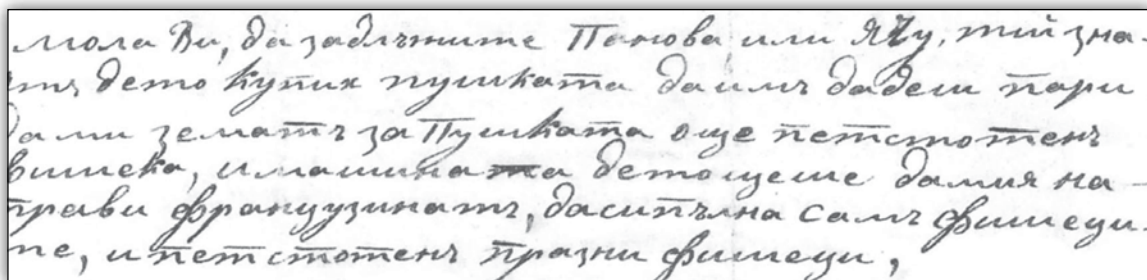 мола Ви, да задлъжите Панова или Яҍу, тий зна-
тъ дето купих пушката да имъ дадеш пари
да ми земать за Пушката още петстотенъ
вишека, и машината детощеше дамия на-
прави французинатъ, дасипълна самъ фишеци-
те, и петстотенъ празни фишеци,